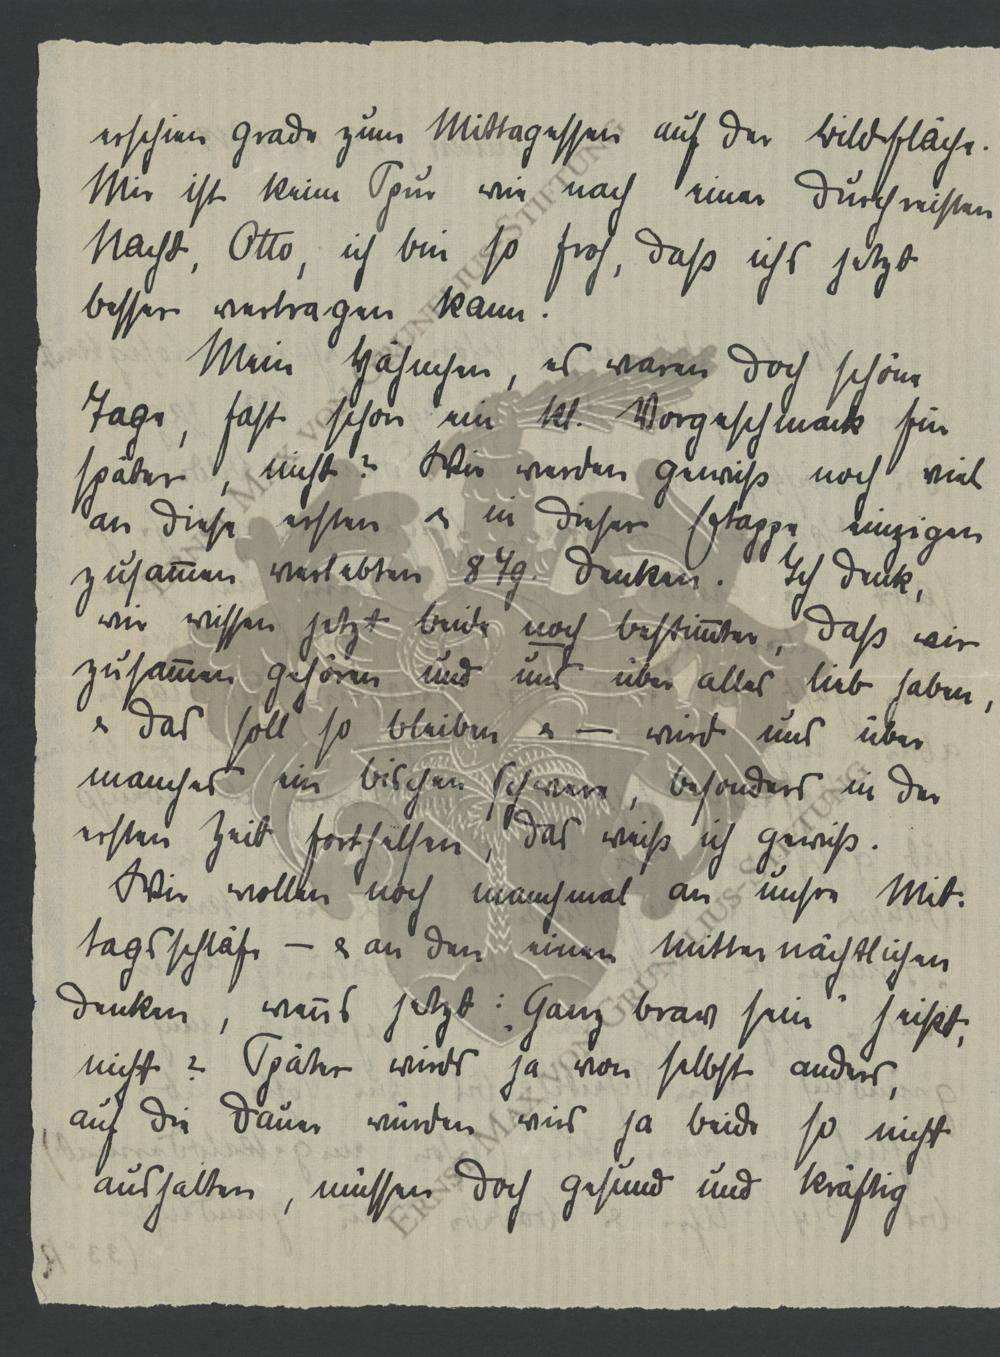 erschien grade zum Mittagessen auf der Bildfläche.
Mir ist keine Spur wie nach einer durchreisten
Nacht, Otto, ich bin so froh, daß ichs jetzt
besser vertragen kann.
Mein Hähnchen, es waren doch schöne
Tage, fast schon ein kl. Vorgeschmack für
später, nicht? Wir werden gewiß noch viel
an diese ersten & in dieser Etappe einzigen
zusam̅en verlebten 8 Tg. denken. Ich denk,
wir wissen jetzt beide noch bestim̅ter, daß wir
zusam̅en gehören und uns über alles lieb haben,
& das soll so bleiben & — wird uns über
manches ein bischen Schwere, besonders in der
ersten Zeit forthelfen, das weiß ich gewiß.
Wir wollen noch manchmal an unsre Mit-
tagsschläfe — & an den einen mitternächtlichen
denken, wen̅s jetzt: „Ganz brav sein" heißt,
nicht? Später wirds ja von selbst anders,
auf die Dauer würden wirs ja beide so nicht
aushalten, müssen doch gesund und kräftig
ERNST MAX VON GRUNELIUS STIFTUNG
ERNST MAX VON GRUNELIUS STIFTUNG